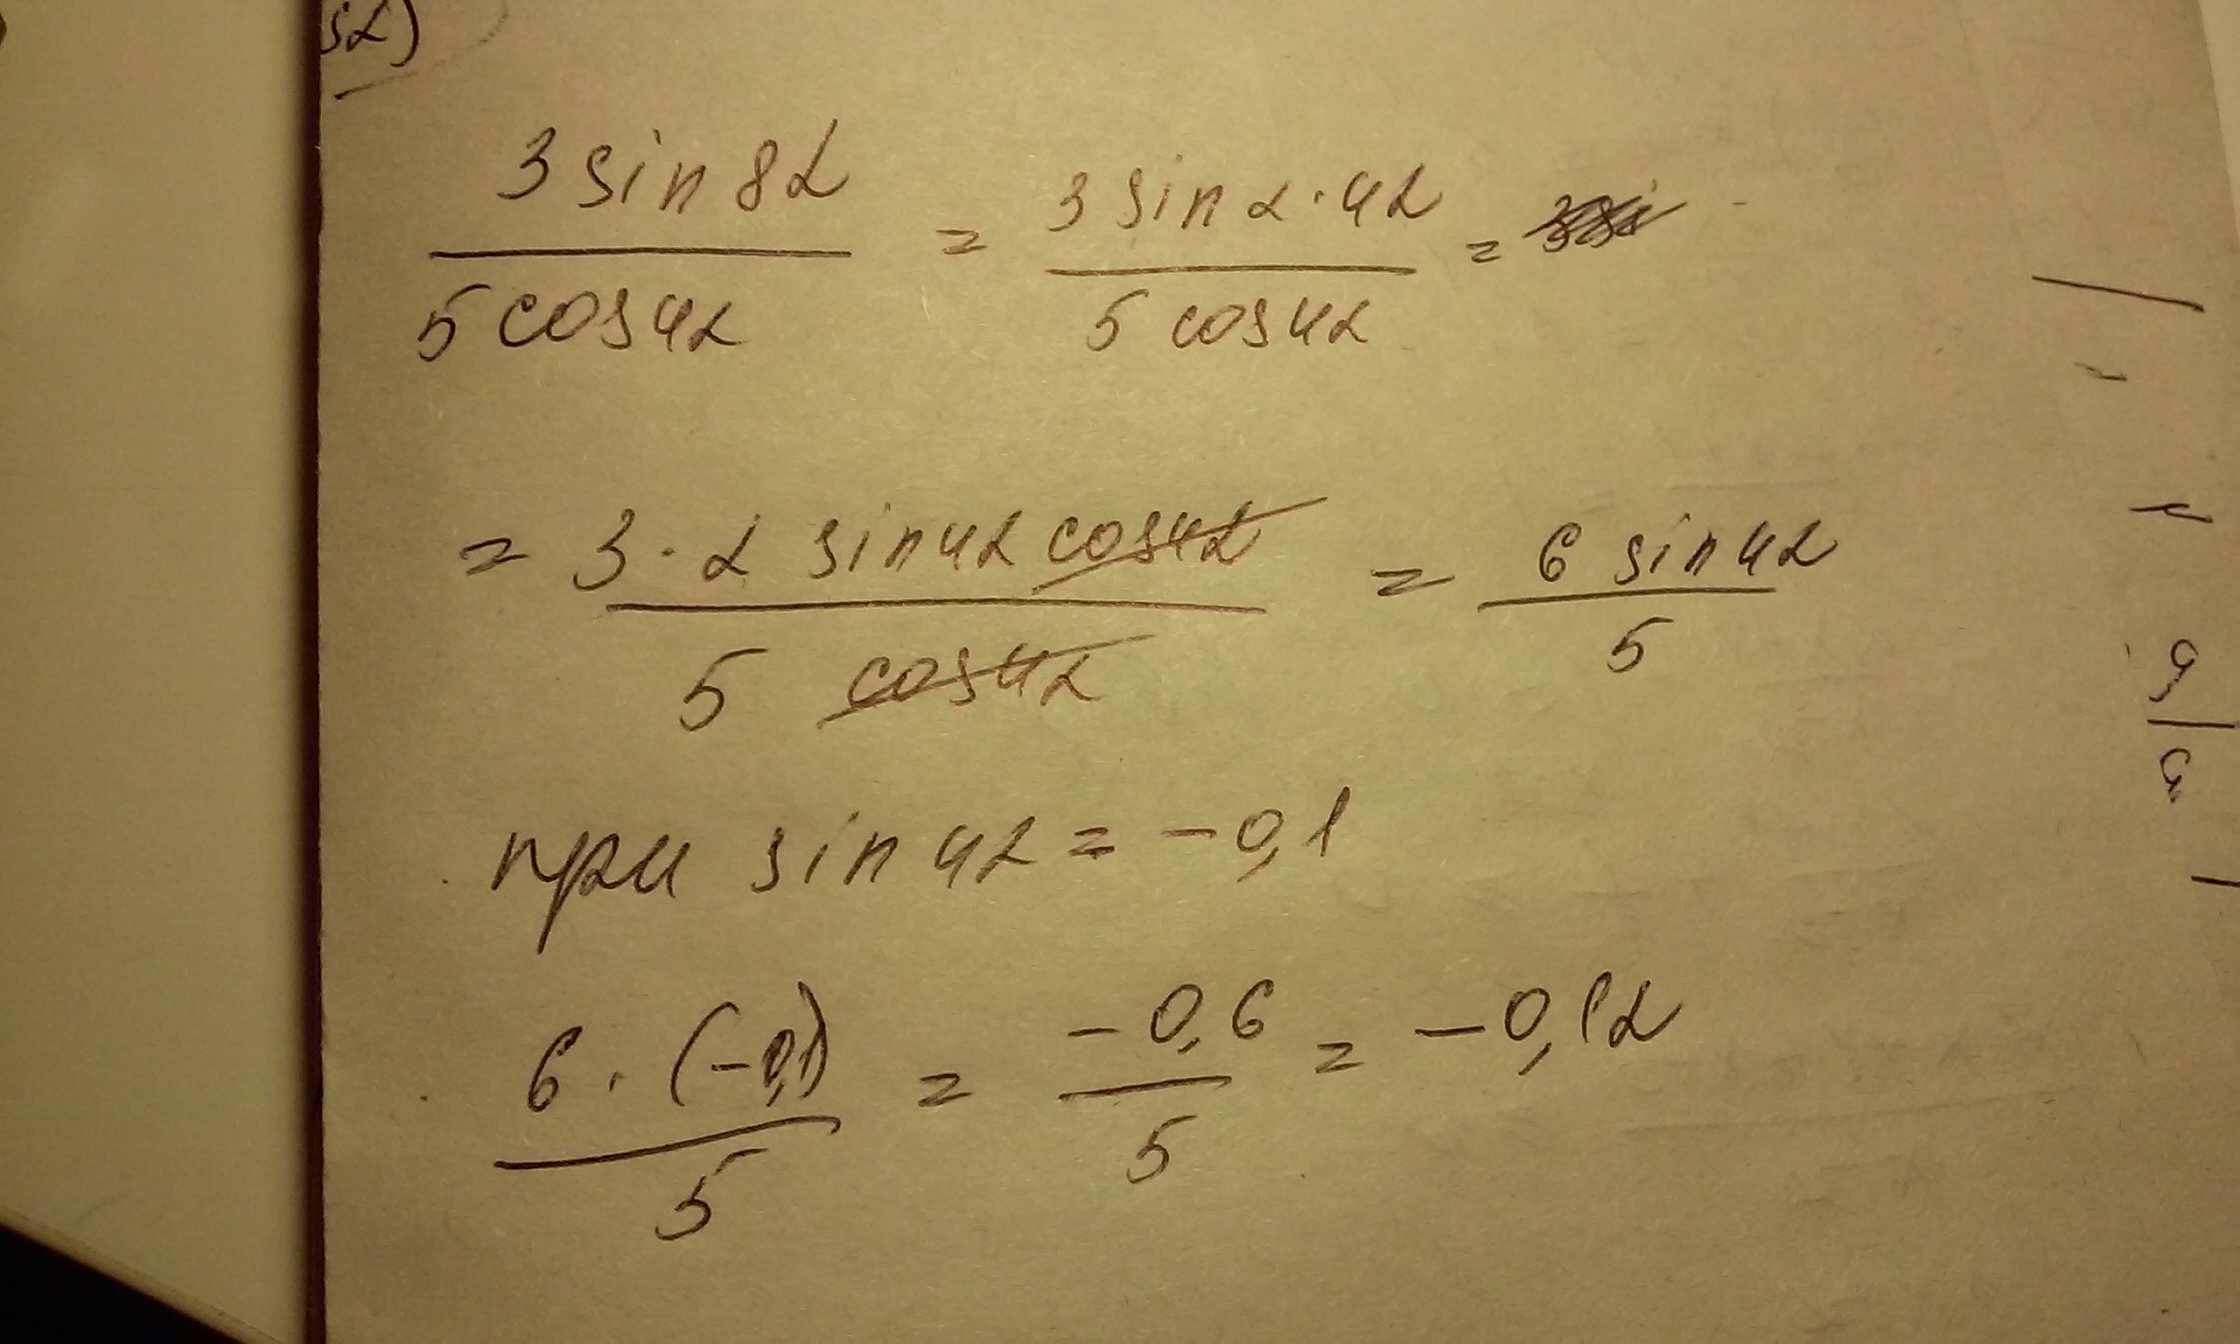 sα)
3 sin 8α / 5 cos 4α = 3 sin 2·4α / 5 cos 4α =
= 3·2 sin 4α cos 4α / 5 cos 4α = 6 sin 4α / 5
при sin 4α = -0,1
6·(-0,1) / 5 = -0,6 / 5 = -0,12